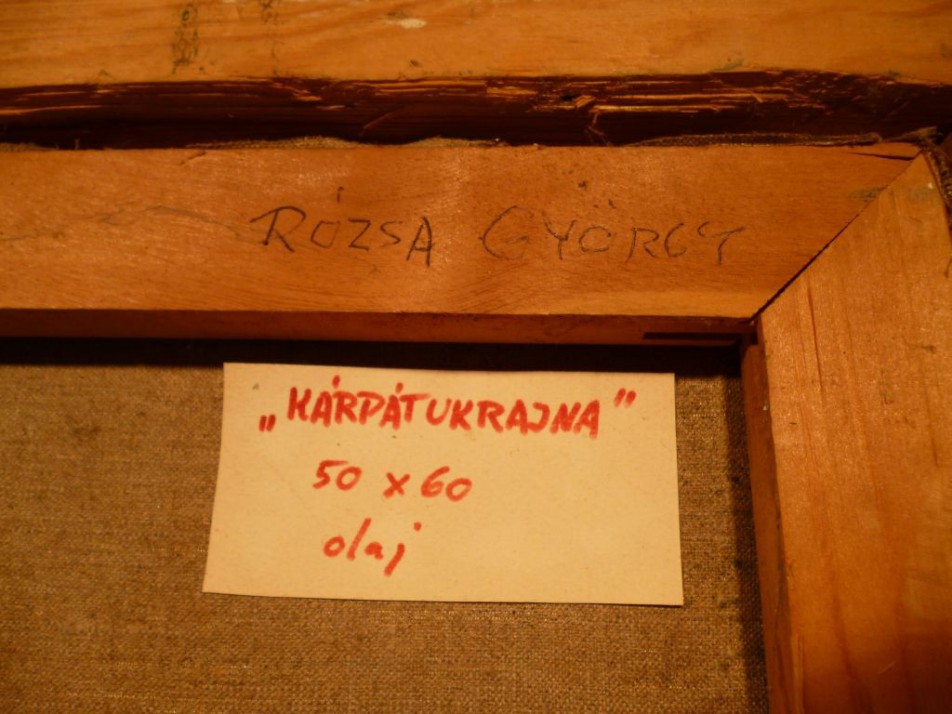 RÓZSA GYÖRGY
„KÁRPÁTUKRAJNA”
50 x 60
olaj